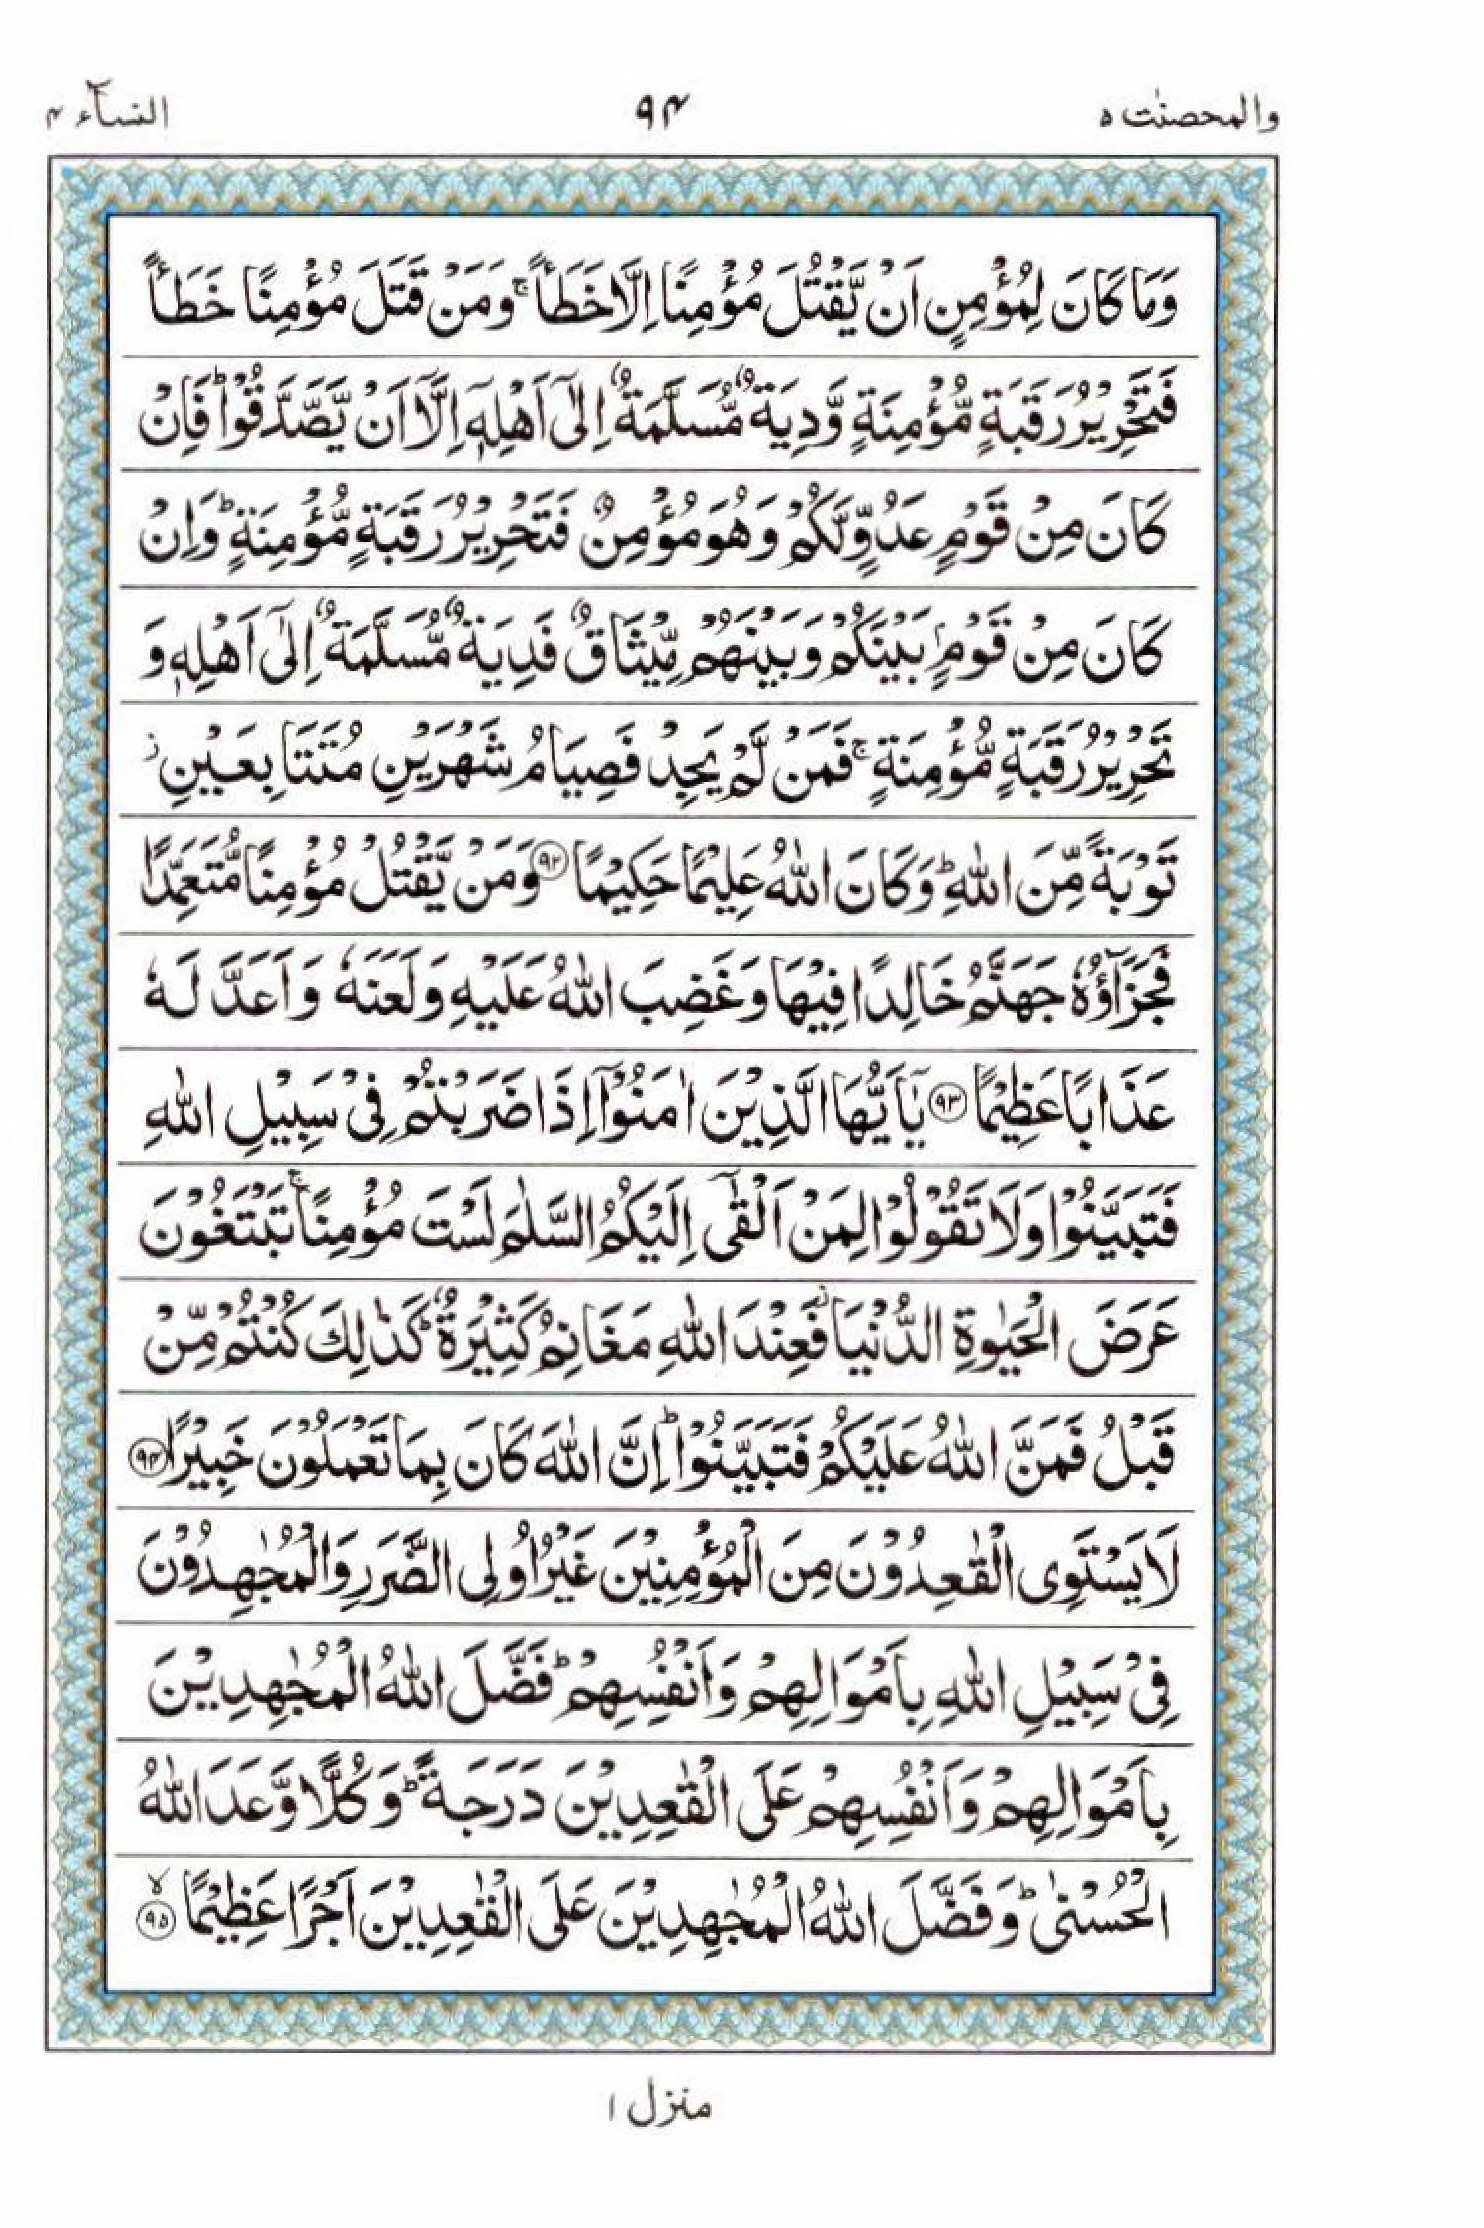 والمحصنٰت ۵ ۹۴ النسآء ۴
وَمَا كَانَ لِمُؤْمِنٍ اَنْ يَّقْتُلَ مُؤْمِنًا اِلَّا خَطَـًٔا ۚ وَمَنْ قَتَلَ مُؤْمِنًا خَطَـًٔا
فَتَحْرِيْرُ رَقَبَةٍ مُّؤْمِنَةٍ وَّدِيَةٌ مُّسَلَّمَةٌ اِلٰٓى اَهْلِهٖٓ اِلَّآ اَنْ يَّصَّدَّقُوْا ؕ فَاِنْ
كَانَ مِنْ قَوْمٍ عَدُوٍّ لَّكُمْ وَهُوَ مُؤْمِنٌ فَتَحْرِيْرُ رَقَبَةٍ مُّؤْمِنَةٍ ؕ وَاِنْ
كَانَ مِنْ قَوْمٍۢ بَيْنَكُمْ وَبَيْنَهُمْ مِّيْثَاقٌ فَدِيَةٌ مُّسَلَّمَةٌ اِلٰٓى اَهْلِهٖ وَ
تَحْرِيْرُ رَقَبَةٍ مُّؤْمِنَةٍ ۚ فَمَنْ لَّمْ يَجِدْ فَصِيَامُ شَهْرَيْنِ مُتَتَابِعَيْنِ ز
تَوْبَةً مِّنَ اللّٰهِ ؕ وَكَانَ اللّٰهُ عَلِيْمًا حَكِيْمًا ﴿۹۲﴾ وَمَنْ يَّقْتُلْ مُؤْمِنًا مُّتَعَمِّدًا
فَجَزَآؤُهٗ جَهَنَّمُ خَالِدًا فِيْهَا وَغَضِبَ اللّٰهُ عَلَيْهِ وَلَعَنَهٗ وَاَعَدَّ لَهٗ
عَذَابًا عَظِيْمًا ﴿۹۳﴾ يٰٓاَيُّهَا الَّذِيْنَ اٰمَنُوْٓا اِذَا ضَرَبْتُمْ فِيْ سَبِيْلِ اللّٰهِ
فَتَبَيَّنُوْا وَلَا تَقُوْلُوْا لِمَنْ اَلْقٰٓى اِلَيْكُمُ السَّلٰمَ لَسْتَ مُؤْمِنًا ۚ تَبْتَغُوْنَ
عَرَضَ الْحَيٰوةِ الدُّنْيَا ز فَعِنْدَ اللّٰهِ مَغَانِمُ كَثِيْرَةٌ ؕ كَذٰلِكَ كُنْتُمْ مِّنْ
قَبْلُ فَمَنَّ اللّٰهُ عَلَيْكُمْ فَتَبَيَّنُوْا ؕ اِنَّ اللّٰهَ كَانَ بِمَا تَعْمَلُوْنَ خَبِيْرًا ﴿۹۴﴾
لَا يَسْتَوِى الْقٰعِدُوْنَ مِنَ الْمُؤْمِنِيْنَ غَيْرُ اُولِى الضَّرَرِ وَالْمُجٰهِدُوْنَ
فِيْ سَبِيْلِ اللّٰهِ بِاَمْوَالِهِمْ وَاَنْفُسِهِمْ ؕ فَضَّلَ اللّٰهُ الْمُجٰهِدِيْنَ
بِاَمْوَالِهِمْ وَاَنْفُسِهِمْ عَلَى الْقٰعِدِيْنَ دَرَجَةً ؕ وَكُلًّا وَّعَدَ اللّٰهُ
الْحُسْنٰى ؕ وَفَضَّلَ اللّٰهُ الْمُجٰهِدِيْنَ عَلَى الْقٰعِدِيْنَ اَجْرًا عَظِيْمًا ﴿۹۵﴾ ۙ
منزل ۱